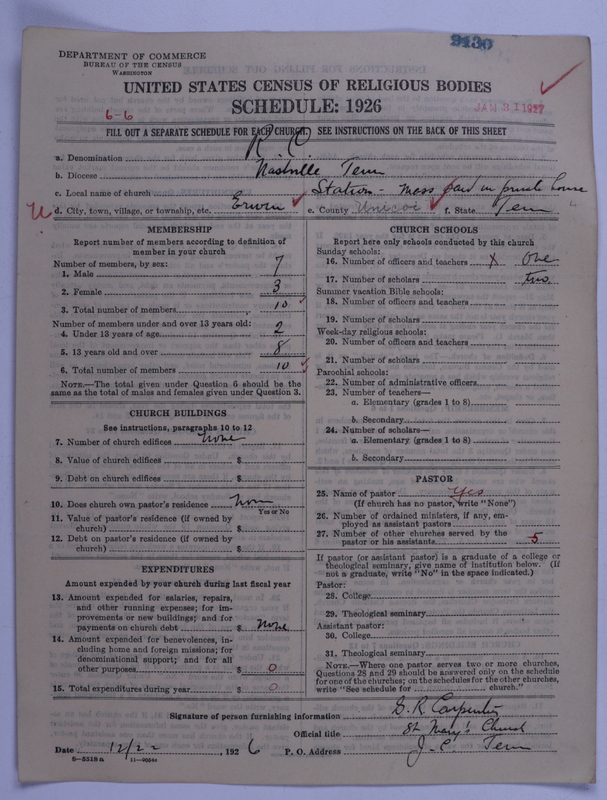 9130
DEPARTMENT OF COMMERCE
BUREAU OF THE CENSUS
WASHINGTON
UNITED STATES CENSUS OF RELIGIOUS BODIES
SCHEDULE: 1926
JAN 31 1927
6-6
FILL OUT A SEPARATE SCHEDULE FOR EACH CHURCH. SEE INSTRUCTIONS ON THE BACK OF THIS SHEET
a. Denomination R C
b. Diocese Nashville Tenn
c. Local name of church Station - Mass said in private house
d. City, town, village, or township, etc. Erwin e. County Unicoi f. State Tenn
MEMBERSHIP
Report number of members according to definition of
member in your church
Number of members, by sex:
1. Male 7
2. Female 3
3. Total number of members 10
Number of members under and over 13 years old:
4. Under 13 years of age 2
5. 13 years old and over 8
6. Total number of members 10
NOTE.—The total given under Question 6 should be the
same as the total of males and females given under Question 3.
CHURCH BUILDINGS
See instructions, paragraphs 10 to 12
7. Number of church edifices none
8. Value of church edifices $
9. Debt on church edifices $
10. Does church own pastor's residence
Yes or No
11. Value of pastor's residence (if owned by
church) $
12. Debt on pastor's residence (if owned by
church) $
EXPENDITURES
Amount expended by your church during last fiscal year
13. Amount expended for salaries, repairs,
and other running expenses; for im-
provements or new buildings; and for
payments on church debt $ None
14. Amount expended for benevolences, in-
cluding home and foreign missions; for
denominational support; and for all
other purposes $ 0
15. Total expenditures during year $ 0
CHURCH SCHOOLS
Report here only schools conducted by this church
Sunday schools:
16. Number of officers and teachers x One
17. Number of scholars two
Summer vacation Bible schools:
18. Number of officers and teachers
19. Number of scholars
Week-day religious schools:
20. Number of officers and teachers
21. Number of scholars
Parochial schools:
22. Number of administrative officers
23. Number of teachers—
a. Elementary (grades 1 to 8)
b. Secondary
24. Number of scholars—
a. Elementary (grades 1 to 8)
b. Secondary
PASTOR
25. Name of pastor Yes
(If church has no pastor, write "None")
26. Number of ordained ministers, if any, em-
ployed as assistant pastors
27. Number of other churches served by the
pastor or his assistants 5
If pastor (or assistant pastor) is a graduate of a college or
theological seminary, give name of institution below. (If
not a graduate, write "No" in the space indicated.)
Pastor:
28. College
29. Theological seminary
Assistant pastor:
30. College
31. Theological seminary
NOTE.—Where one pastor serves two or more churches,
Questions 28 and 29 should be answered only on the schedule
for one of the churches; on the schedules for the other churches,
write "See schedule for church."
Signature of person furnishing information S. R Carpenter
Official title St Mary's Church
Date 12/22, 1926 P. O. Address J. C. Tenn
8—5518a 11—9664a